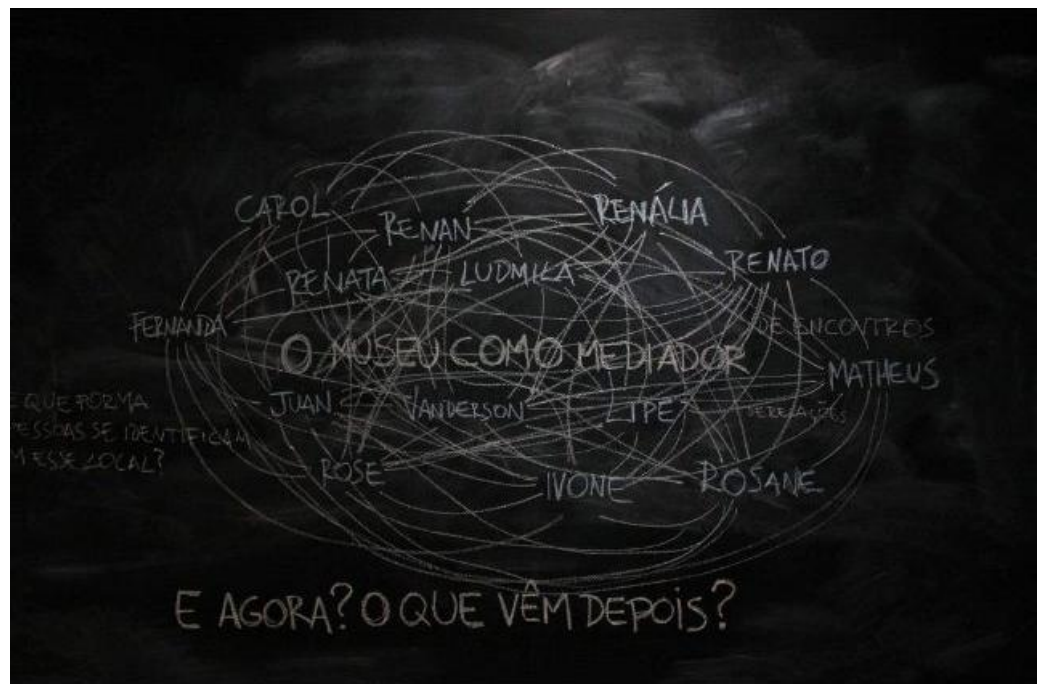 CAROL
RENAN
RENÁLIA
RENATA
LUDMILA
RENATO
FERNANDA
DE ENCONTROS
O MUSEU COMO MEDIADOR
MATHEUS
JUAN
VANDERSON
LIPE
DE RELAÇÕES
E QUE FORMA
PESSOAS SE IDENTIFICAM
M ESSE LOCAL?
ROSE
IVONE
ROSANE
E AGORA? O QUE VÊM DEPOIS?